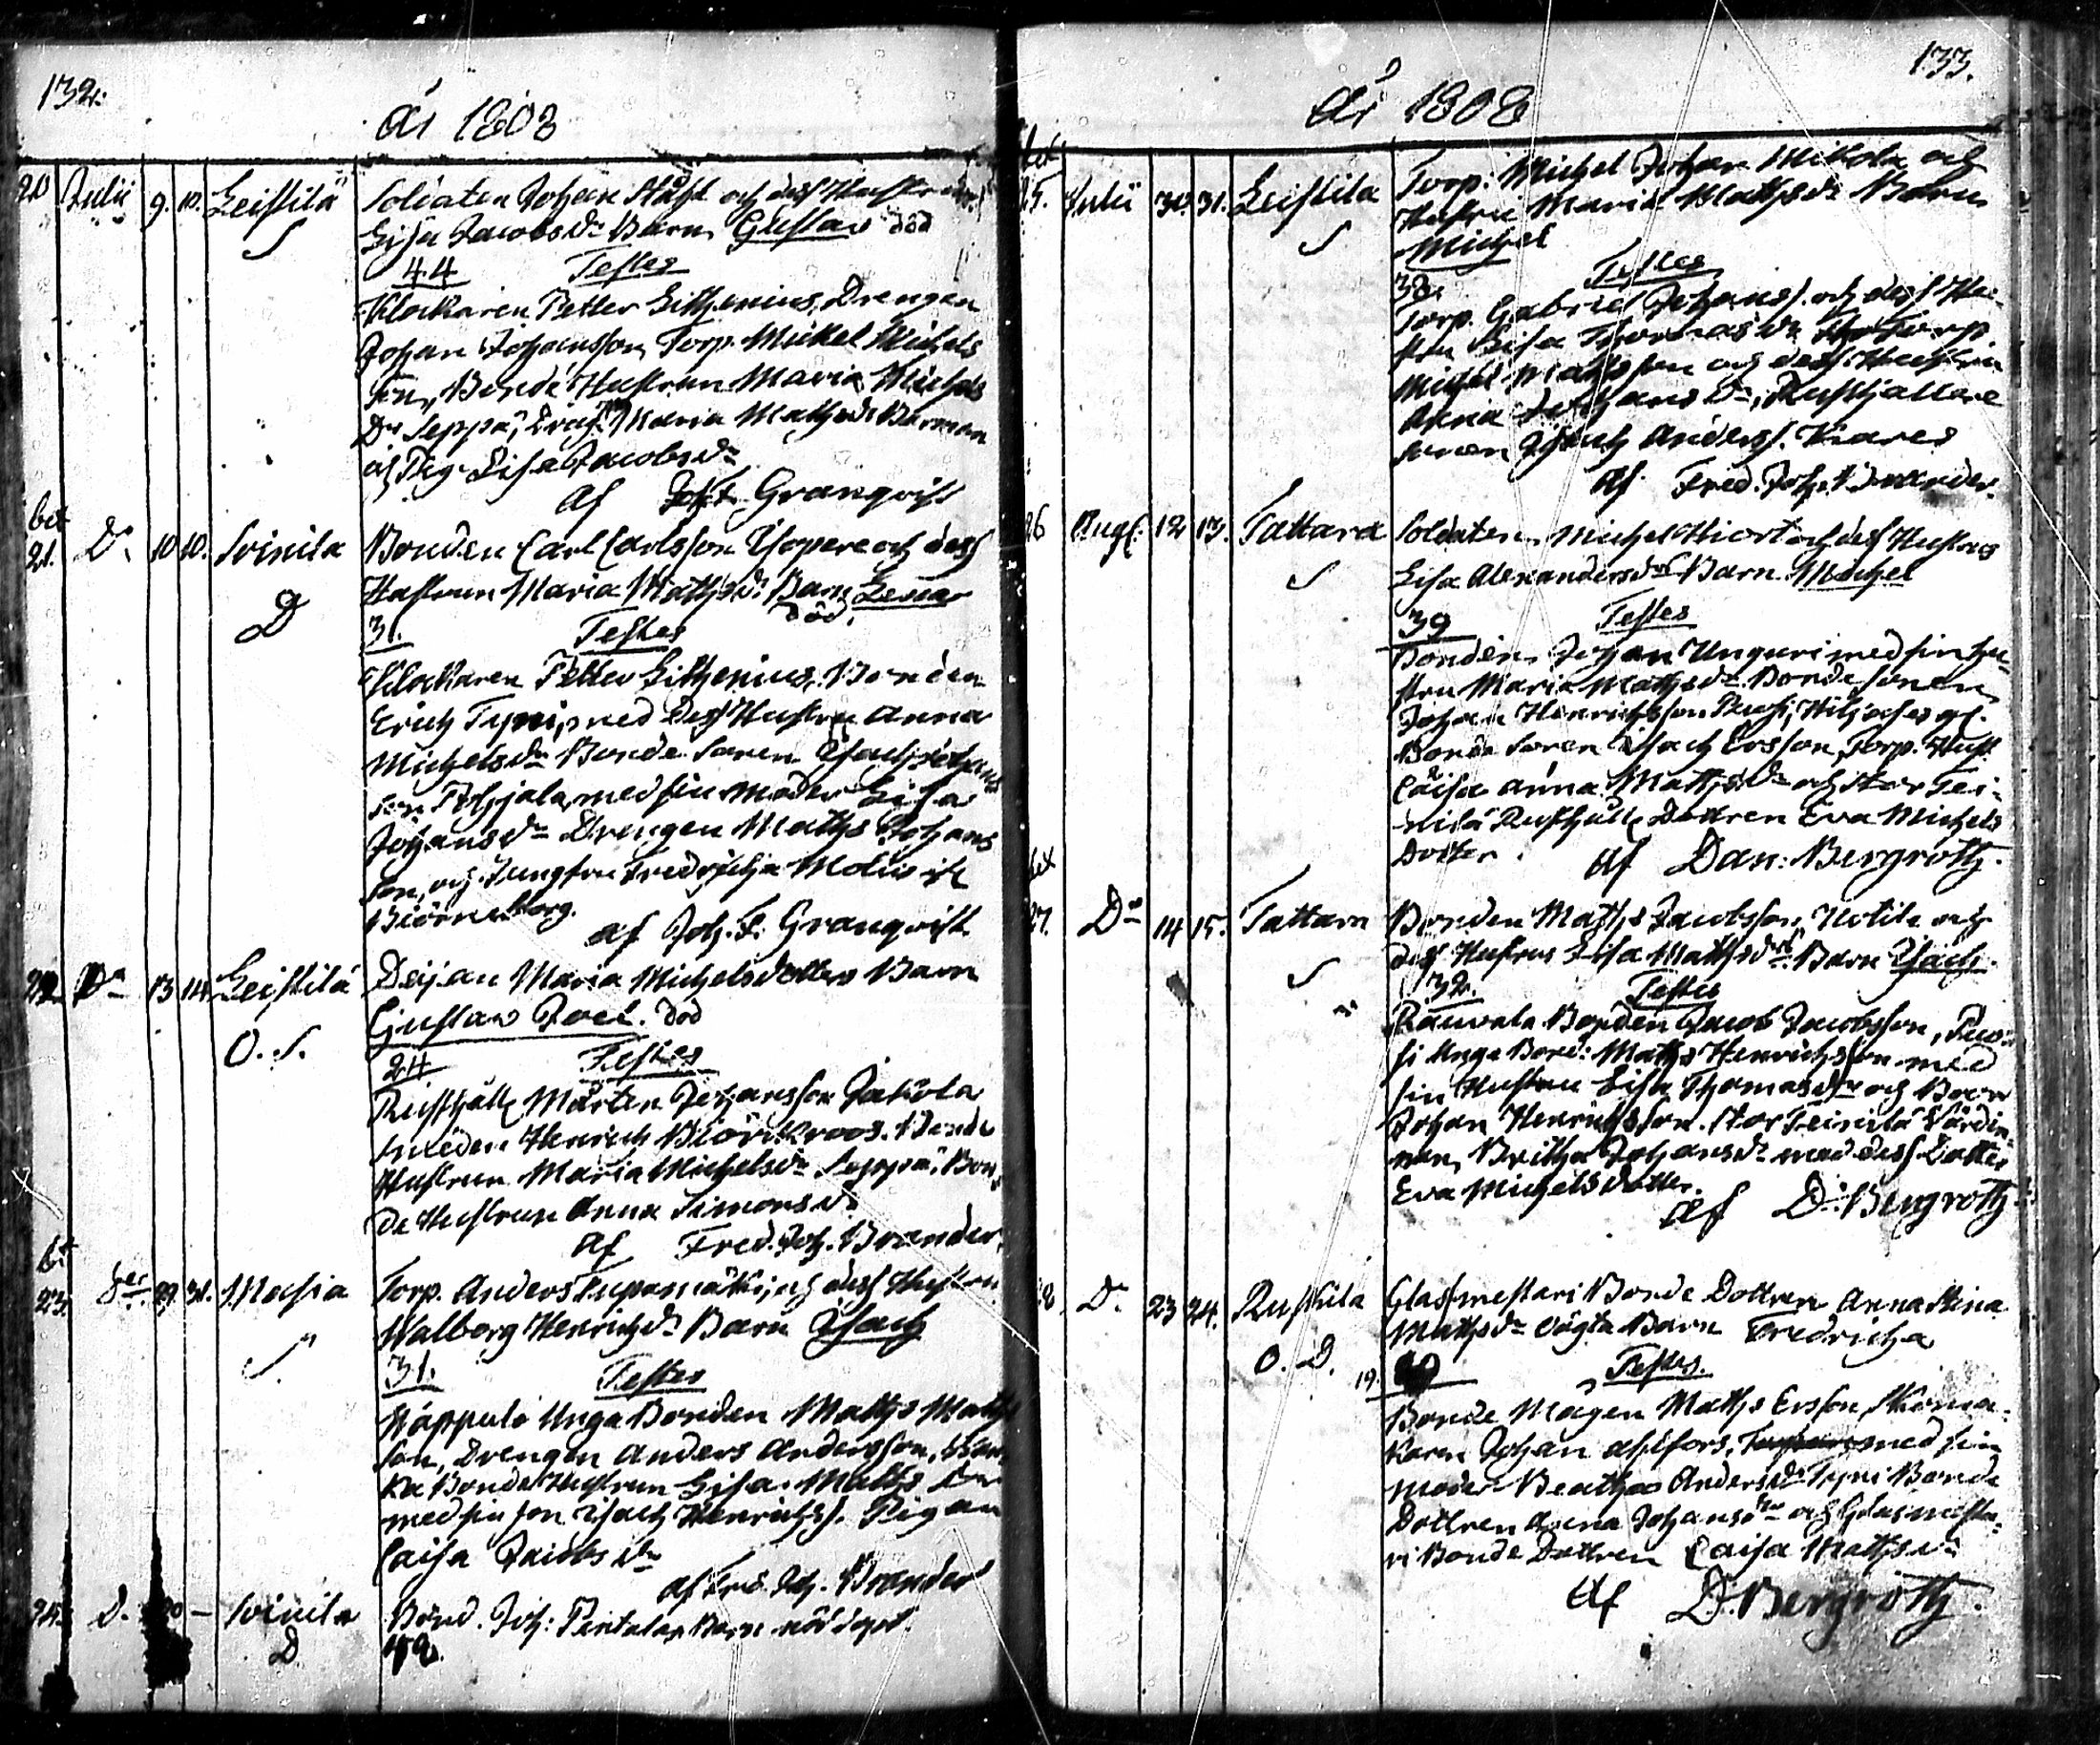 132.
År 1808
20 Julii 9. 10. Leistilä Soldaten Johan Ståhl och dess Hustru
S Lisa Jacobsdr Barn Gustav död
44 Testes
Klockaren Petter Lithenius, Drengen
Johan Johansson, Torp. Mickel Michels
son, Bonde Hustrun Maria Michels
Dr Seppä, Maria Mathsdr
och Pig. Lisa Jacobsdr
af Joh. F. Granqvist
bet
21. Do 10 10. Soinila Bonden Carl Carlsson Yhopere och dess
D Hustrun Maria Mathsdr Barn Lena
död.
31. Testes
Klockaren Petter Lithenius, Bonden
Erich Tyni, med dess Hustru Anna
Michelsdr Bonde Sonen Isach Johans
son Pohjala, med sin moder Lisa
Johansdr Drengen Maths Johans
son, och Jungfru Fredricha Molin ifr.
Biörneborg.
af Joh. F. Granqvist
22 Do 13 14. Leistilä Deijan Maria Michelsdotters Barn
O. S. Gustav Joel. död
24 Testes
Rusthåll. Mårten Johansson Jaköla
Smeden Henrich Biörkroos. Bonde
Hustrun Maria Michelsdr Seppä, Bon
de Hustrun Anna Simonsdr
af Fred. Joh. Brander.
bet
23. 29. 31. Masia Torp. Anders och dess Hustru
S. Walborg Henrichdr Barn Isach
31. Testes
Wäppulä Unga Bonden Maths Maths
son, Drengen Anders Andersson,
ka Bonde Hustrun Lisa Maths Dr
med sin son Isach Henrichss. Pigan
Caisa Jacobsdr
af Fred. Joh. Brander
24. D. 30 — Soinila Bond. Joh: Pentalas Barn nöddöpt.
D 42.
133.
År 1808
bet
25. Julii 30. 31. Leistila Torp. Michel Johan Mikola och
S Hustru Maria Mathsdr Barn
Michel
38. Testes
Torp. Gabriel Johanss. och dess Hu-
stru Lisa Thomasdr Torp.
Michel Mathsson och dess Hustru
Anna Johans Dr, Rusthållare
sonen Isach Anderss. Kares
af Fred. Joh. Brander.
26 Aug. 12 13. Tattara Soldaten Michel Hiort och dess Hustrus
S Lisa Alexandersdrs Barn Michel
39 Testes
Bonden Johan Unguri med sin hu-
stru Maria Mathsdr. Bonde sonen
Johan Henrichsson Russi,
Bonde sonen Isach Ersson, Torp. Hust.
Caisa Anna Mathsdr och Stor Tei-
nilä Rusthåll. Dottren Eva Michels
Dotter. af Dan: Bergroth.
bet
27. Do 14 15. Tattara Bonden Maths Jacobsson Hotila och
S dess Hustrus Lisa Mathsdrs Barn Isach.
32. Testes
Rauvala Bonden Jacob Jacobsson, Rus-
si Unga Bond: Maths Henrichsson med
sin Hustru Lisa Thomasdr och Bonn
Johan Henrichsson. Stor Teinilä Värdin-
nan, Britha Johansdr med dess Dotter
Eva Michelsdotter.
af D: Bergroth.
28 Do 23 24. Ruskila Glasmestari Bonde Dottren Anna Stina
O. D. Mathsdr oägta Barn Fredricha
19. Testes.
Bonde Mågen Maths Ersson, Skoma-
karen Johan Ahlfors, med sin
moder Beatha Andersdr Tyni Bonde
Dottren Anna Johansdr och Glasmesta-
ri Bonde Dottren Caisa Mathsdr
af D. Bergroth.